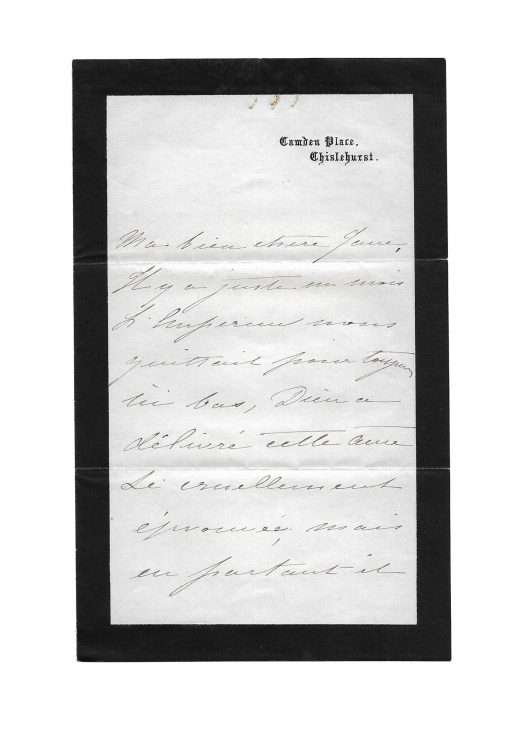 Camden Place,
Chislehurst.
Ma bien chère Jane,
Il y a juste un mois
L'Empereur nous
quittait pour toujours
ici bas, Dieu a
délivré cette âme
Si cruellement
éprouvée, mais
en partant il